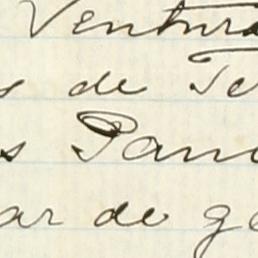 Ventura
s de Te
s Panc
ar de ge